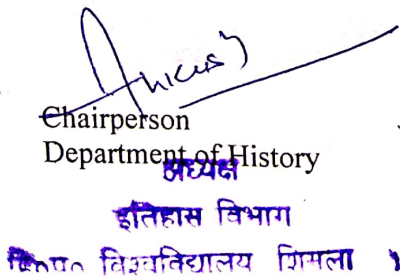 Chairperson
Department of History
अध्यक्ष
इतिहास विभाग
वि०वि० विश्वविद्यालय शिमला